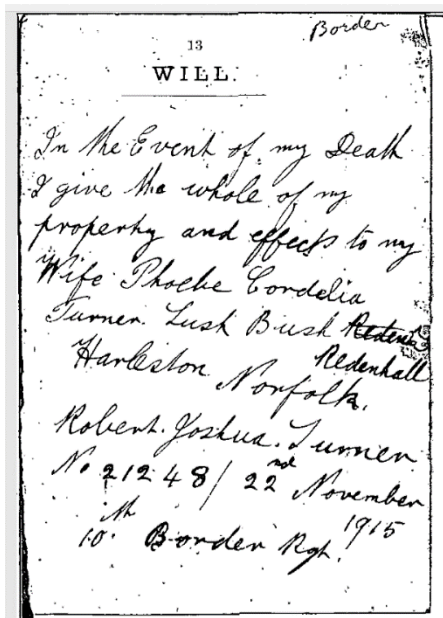 Border
13
WILL.
In the Event of my Death
I give the whole of my
property and effects to my
Wife Phoebe Cordelia
Turner. Lush Bush
Redenhall
Harleston Norfolk.
Robert. Joshua. Turner.
No 21248/ 22nd November
1915
10.th Border Rgt.